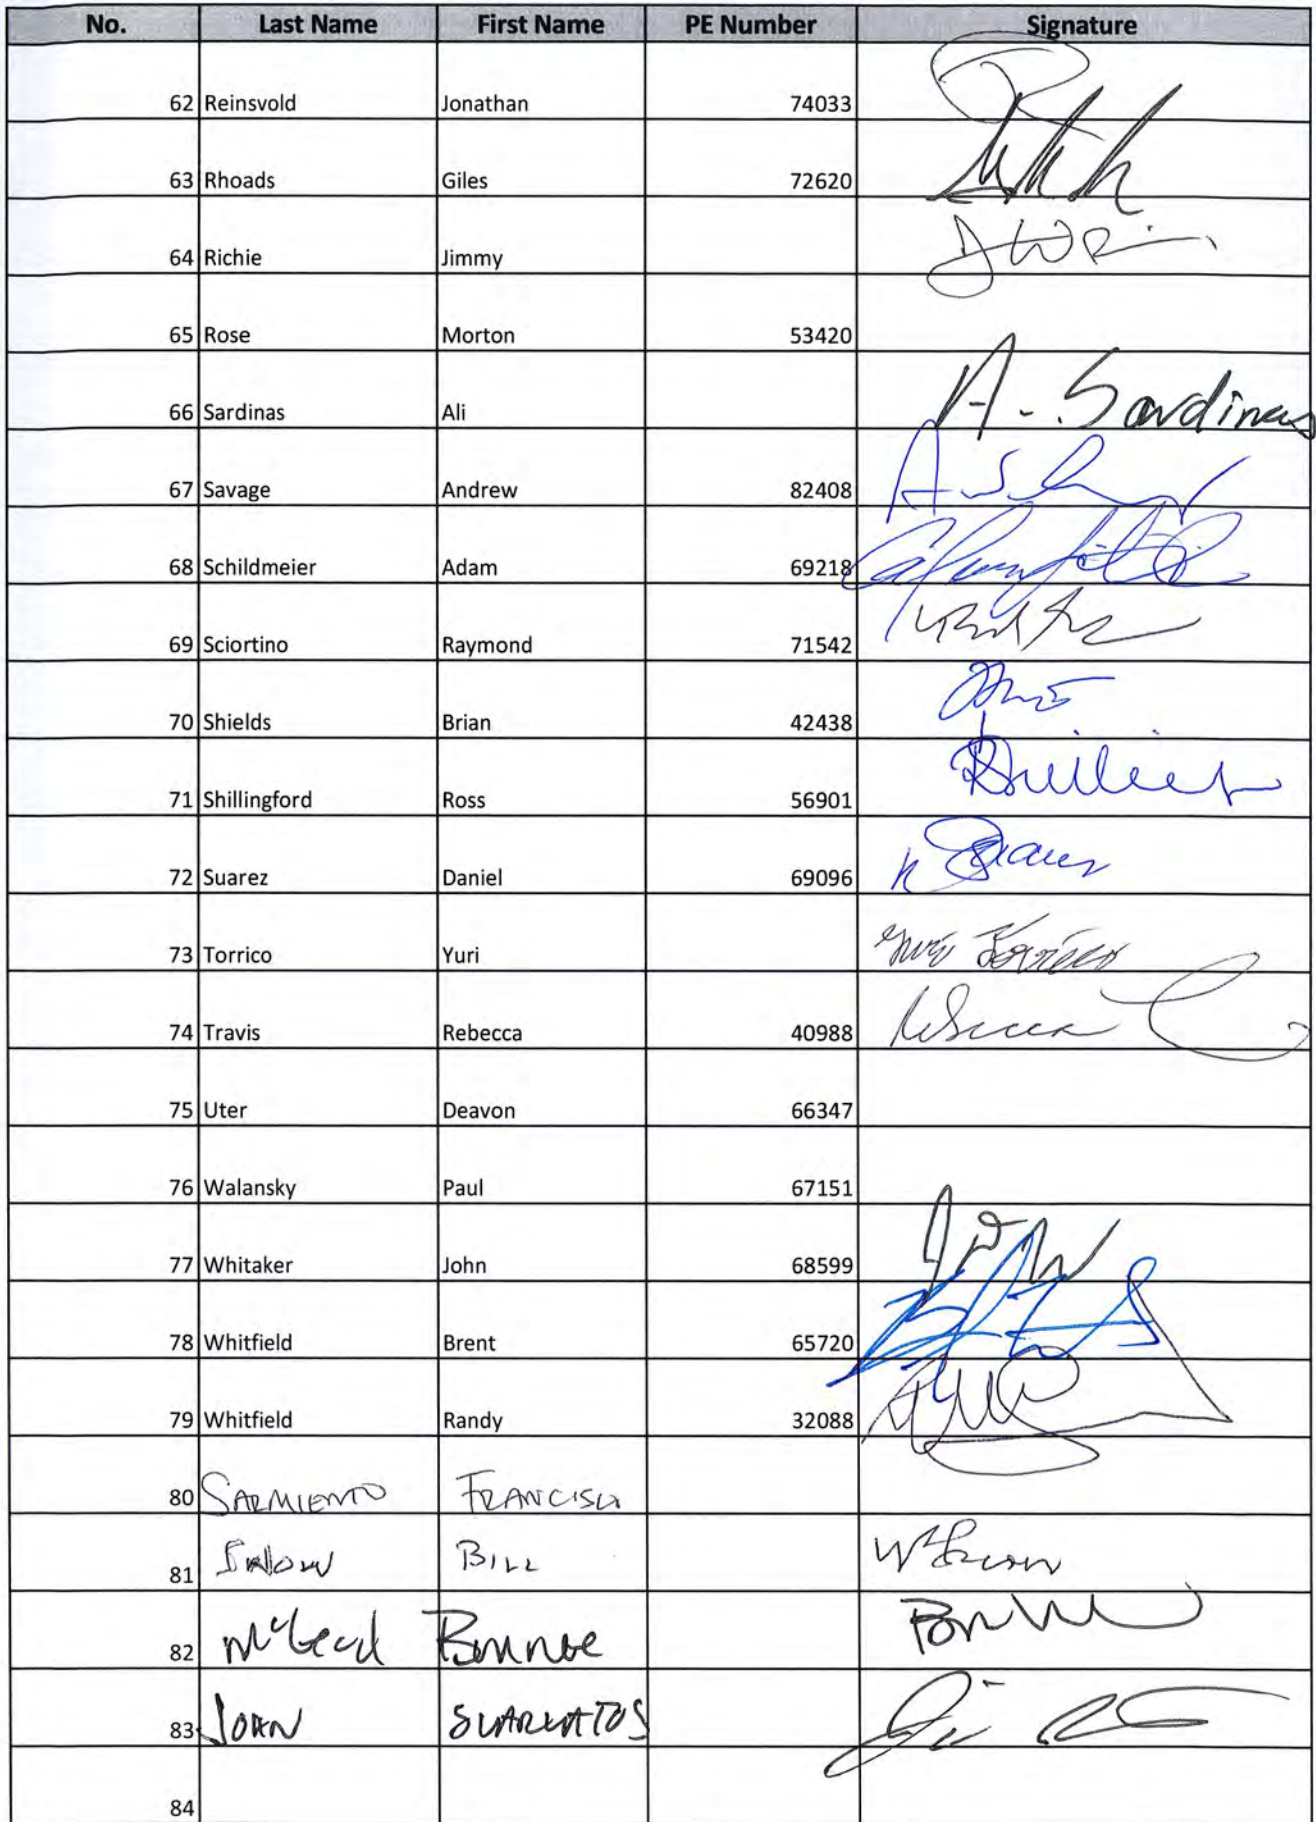 No. Last Name First Name PE Number Signature
62 Reinsvold Jonathan 74033
63 Rhoads Giles 72620
64 Richie Jimmy
65 Rose Morton 53420
66 Sardinas Ali A. Sardinas
67 Savage Andrew 82408
68 Schildmeier Adam 69218
69 Sciortino Raymond 71542
70 Shields Brian 42438
71 Shillingford Ross 56901
72 Suarez Daniel 69096
73 Torrico Yuri Yuri Torrico
74 Travis Rebecca 40988
75 Uter Deavon 66347
76 Walansky Paul 67151
77 Whitaker John 68599
78 Whitfield Brent 65720
79 Whitfield Randy 32088
80 SARMIENTO FRANCISCO
81 SNOW BILL
82 McLeod Bonnie
83 JOHN
84